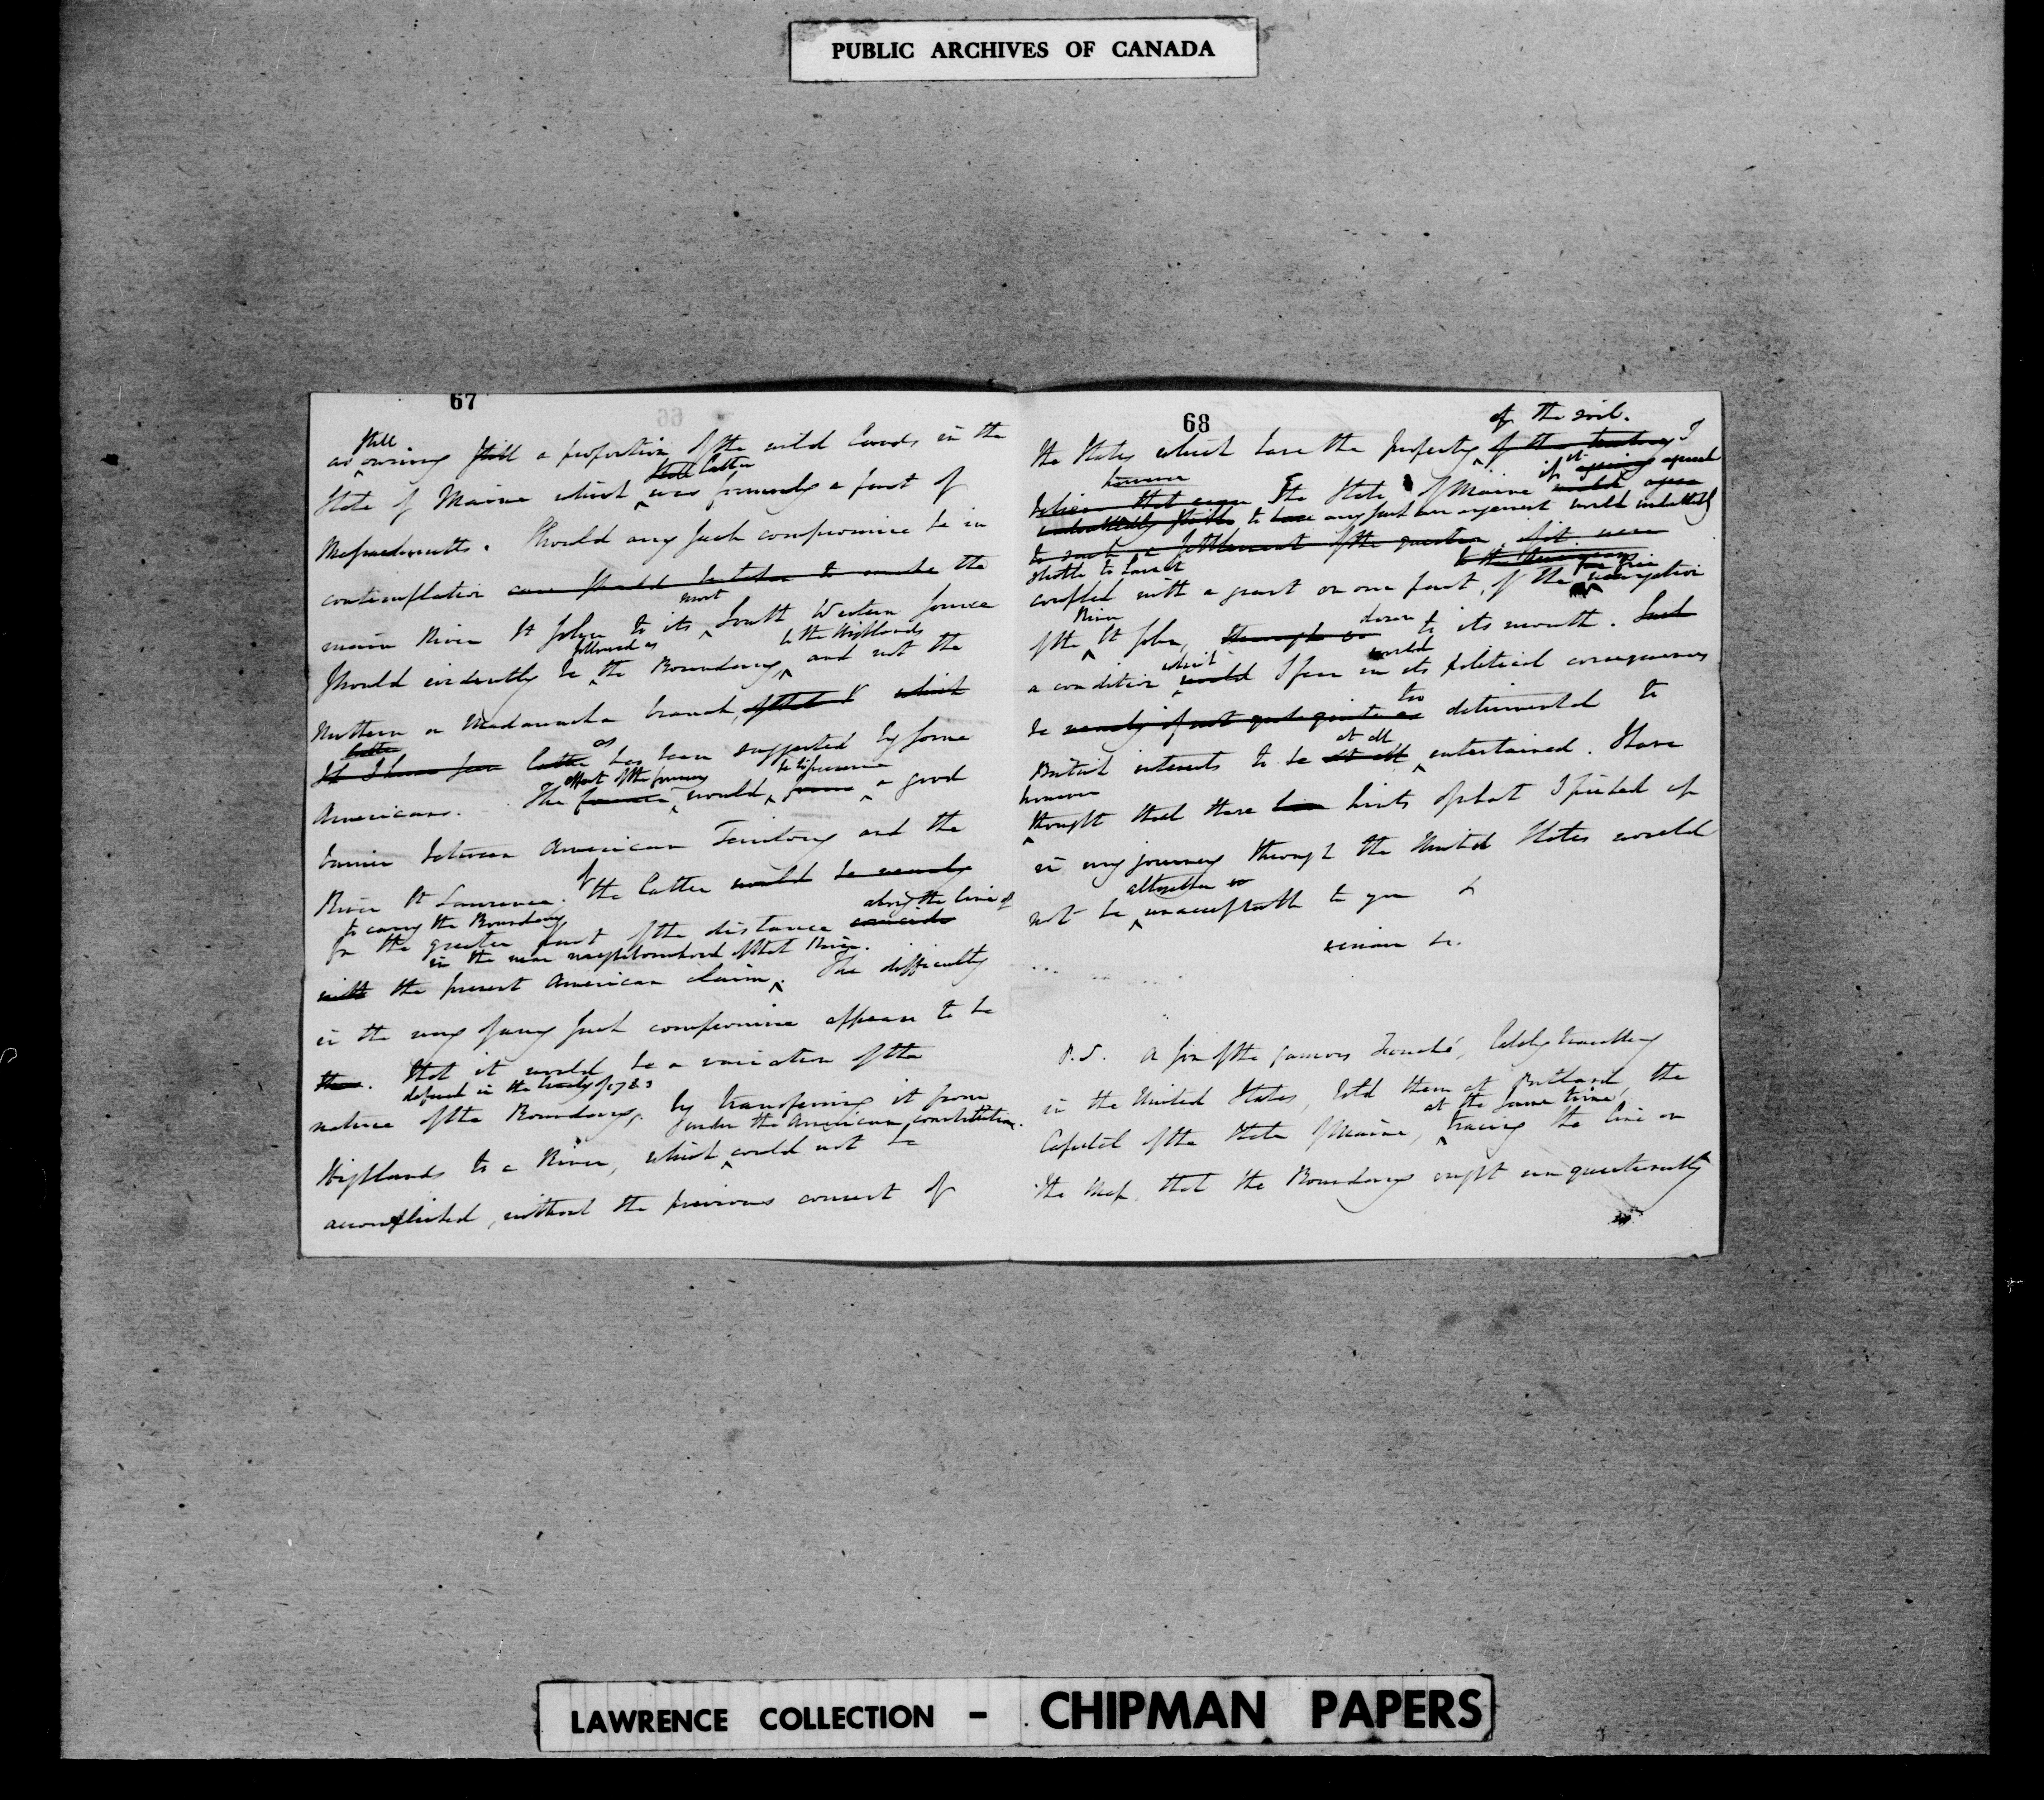 PUBLIC ARCHIVES OF CANADA
67
still
as owning still a proportion of the wild lands in the
still latter
State of Maine which was formerly a part of
Massachusetts. Should any such compromise be in
contemplation care should be taken to make the
most
main River St John to its South Western source
followed as to the Highlands
should evidently be the Boundary, and not the
Northern or Madawaska branch, of that which
latter as
latter has been suggested by some
effect of the former be to
Americans. The former would form a good
barrier between American Territory and the
River St Lawrence. Of the latter would be nearly
to carry the Boundary along the line of
for the greater part of the distance coincide
in the near neighbourhood of that River.
with the present American claim. The difficulty
in the way of any such compromise appears to be
that it would be a variation of the
defined in the treaty of 1783
nature of the Boundary, by transferring it from
under the American constitution.
Highlands to a River, which could not be
accomplished, without the previous consent of
68
of the soil.
the States which have the property of the territory I
however if it agreed
believe that even The State of Maine would agree
undoubtedly to have any such arrangement would undoubtedly
to such a settlement of the question, if it were
to the Americans free
coupled with a grant on our part, of the navigation
River down
of the St John, through to its mouth. Such
which would
a condition would I fear in its political consequences
too
be nearly if not quite as detrimental to
at all
British interests to be at all entertained. I have
however
thought that these hints of what I picked up
in my journey through the United States would
altogether
not be unacceptable to you &
remain &c.
P.S. A son of the famous Fouché, lately travelling
in the United States, told them at Portland, the
at the same time
Capital of the State of Maine, tracing the line on
the Map, that the Boundary ought unquestionably
LAWRENCE COLLECTION - CHIPMAN PAPERS